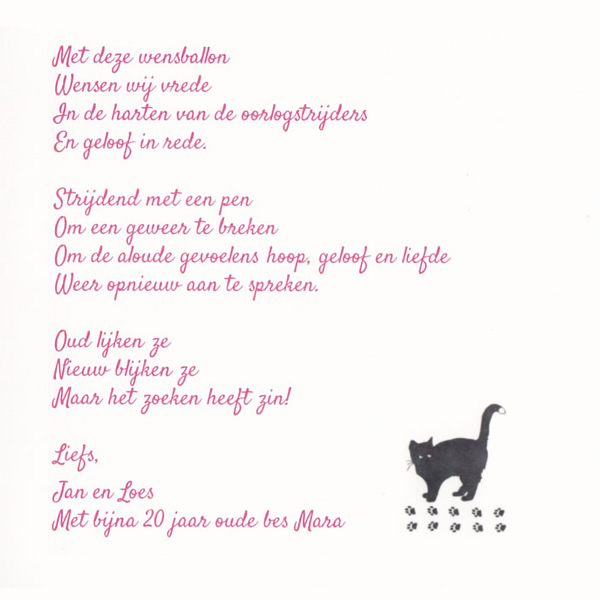 Met deze wensballon
Wensen wij vrede
In de harten van de oorlogstrijders
En geloof in rede.

Strijdend met een pen
Om een geweer te breken
Om de aloude gevoelens hoop, geloof en liefde
Weer opnieuw aan te spreken.

Oud lijken ze
Nieuw blijken ze
Maar het zoeken heeft zin!

Liefs,
Jan en Loes
Met bijna 20 jaar oude bes Mara